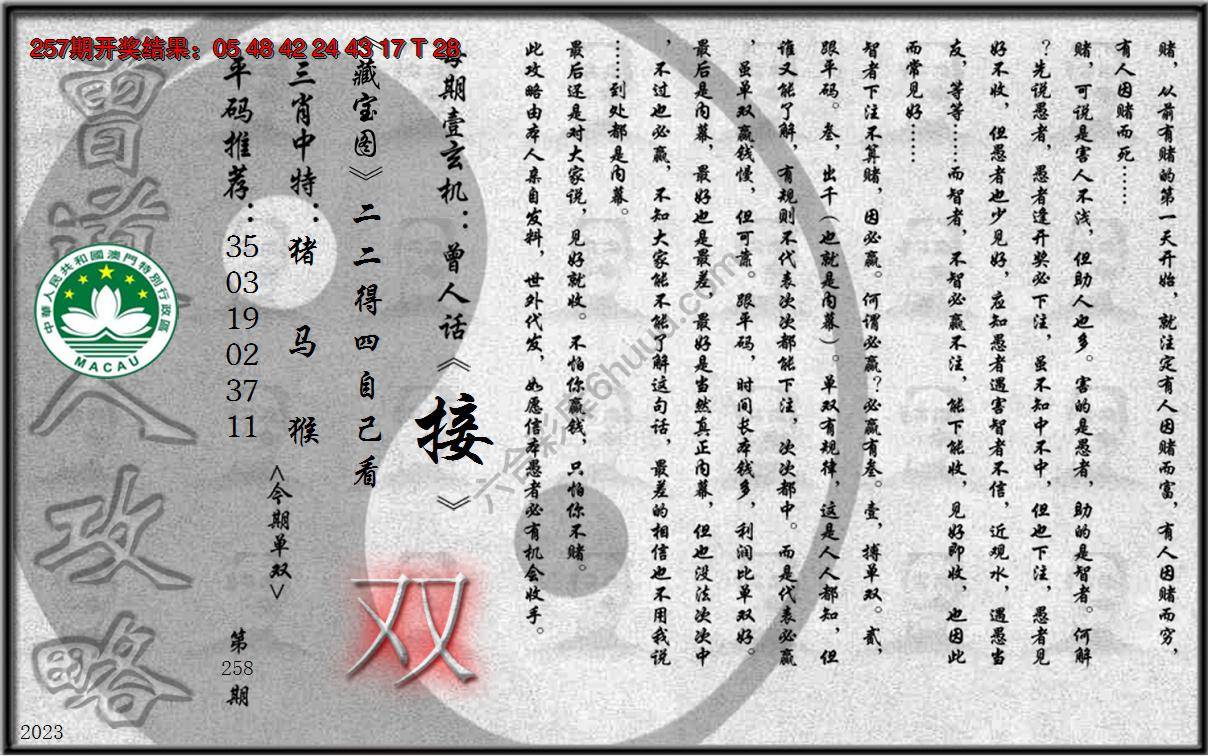 257期开奖结果：05 48 42 24 43 17 T 28
赌，从前有赌的第一天开始，就注定有人因赌而富，有人因赌而穷，
有人因赌而死……
赌，可说是害人不浅，但助人也多。害的是愚者，助的是智者。何解
？先说愚者，愚者逢开奖必下注，虽不知中不中，但也下注，愚者见
好不收，但愚者也少见好，应知愚者遇害智者不信，近观水，遇愚当
友，等等……而智者，不智必赢不注，能下能收，见好即收，也因此
而常见好……
智者下注不算赌，因必赢。何谓必赢？必赢有叁。壹，搏单双。贰，
跟平码。叁，出千（也就是内幕）。单双有规律，这是人人都知，但
谁又能了解，有规则不代表次次都能下注，次次都中。而是代表必赢
，虽单双赢钱慢，但可靠。跟平码，时间长本钱多，利润比单双好。
最后是内幕，最好也是最差，最好是当然真正内幕，但也没法次次中
，不过也必赢，不知大家能不能了解这句话，最差的相信也不用我说
……到处都是内幕。
最后还是对大家说，见好就收。不怕你赢钱，只怕你不赌。
此攻略由本人亲自发料，世外代发，如愿信本愚者必有机会收手。
每期壹玄机：曾人话《接》
《藏宝图》二二得四自己看
双
三肖中特：猪 马 猴
<今期单双>
平码推荐：35 03 19 02 37 11
第258期
曾道人攻略
中華人民共和國澳門特別行政區
MACAU
六合彩库6huuu.com
2023